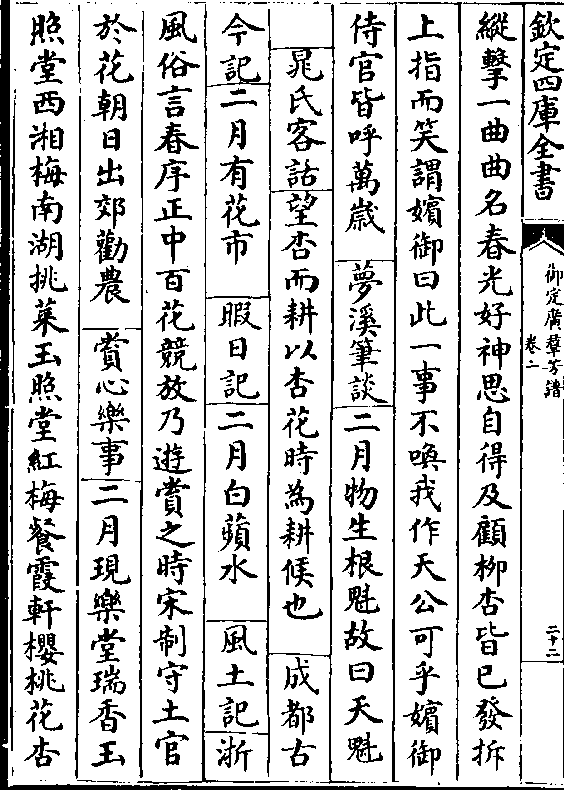 欽定四庫全書
御定廣群芳譜
卷二
二十二
縱擊一曲曲名春光好神思自得及顧柳杏皆已發拆
上指而笑謂嬪御曰此一事不喚我作天公可乎嬪御
侍官皆呼萬歳 夢溪筆談二月物生根魁故曰天魁
晁氏客話望杏而耕以杏花時為耕候也 成都古
今記二月有花市 暇日記二月白蘋水 風土記浙
風俗言春序正中百花競放乃遊賞之時宋制守土官
於花朝日出郊勸農 賞心樂事二月現樂堂瑞香玉
照堂西湘梅南湖挑菜玉照堂紅梅餐霞軒櫻桃花杏